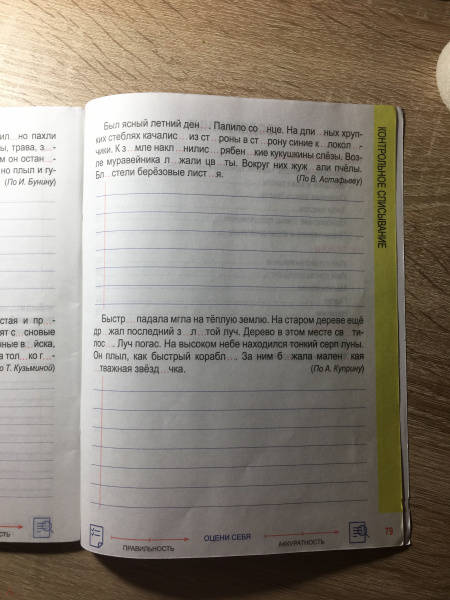 ил..но пахли
ы, трава, з..-
м он остан..-
но плыл и гу-
(По И. Бунину)
стая и пр..-
ят с..сновые
ные в..йска,
а тол..ко г..-
о Т. Кузьминой)
ность
Был ясный летний ден... Палило со..нце. На дли..ных хруп-
ких стеблях качалис.. из ст..роны в ст..рону синие к..локол..-
чики. К з..мле накл..нилис.. рябен..кие кукушкины слёзы. Воз-
ле муравейника л..жали цв..ты. Вокруг них жуж..али пчёлы.
Бл..стели берёзовые лист..я.
(По В. Астафьеву)
Быстр.. падала мгла на тёплую землю. На старом дереве ещё
др..жал последний з..л..той луч. Дерево в этом месте св..ти-
лос... Луч погас. На высоком небе находился тонкий серп луны.
Он плыл, как быстрый корабл... За ним б..жала мален..кая
..тважная звёзд..чка.
(По А. Куприну)
КОНТРОЛЬНОЕ СПИСЫВАНИЕ
ПРАВИЛЬНОСТЬ
ОЦЕНИ СЕБЯ
АККУРАТНОСТЬ
79